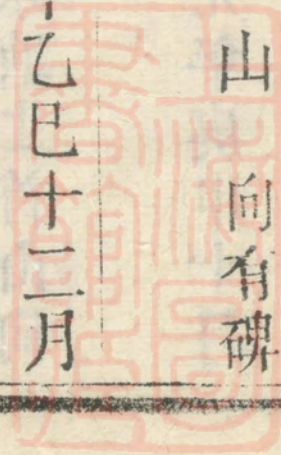 山　向有碑
乙巳十二月